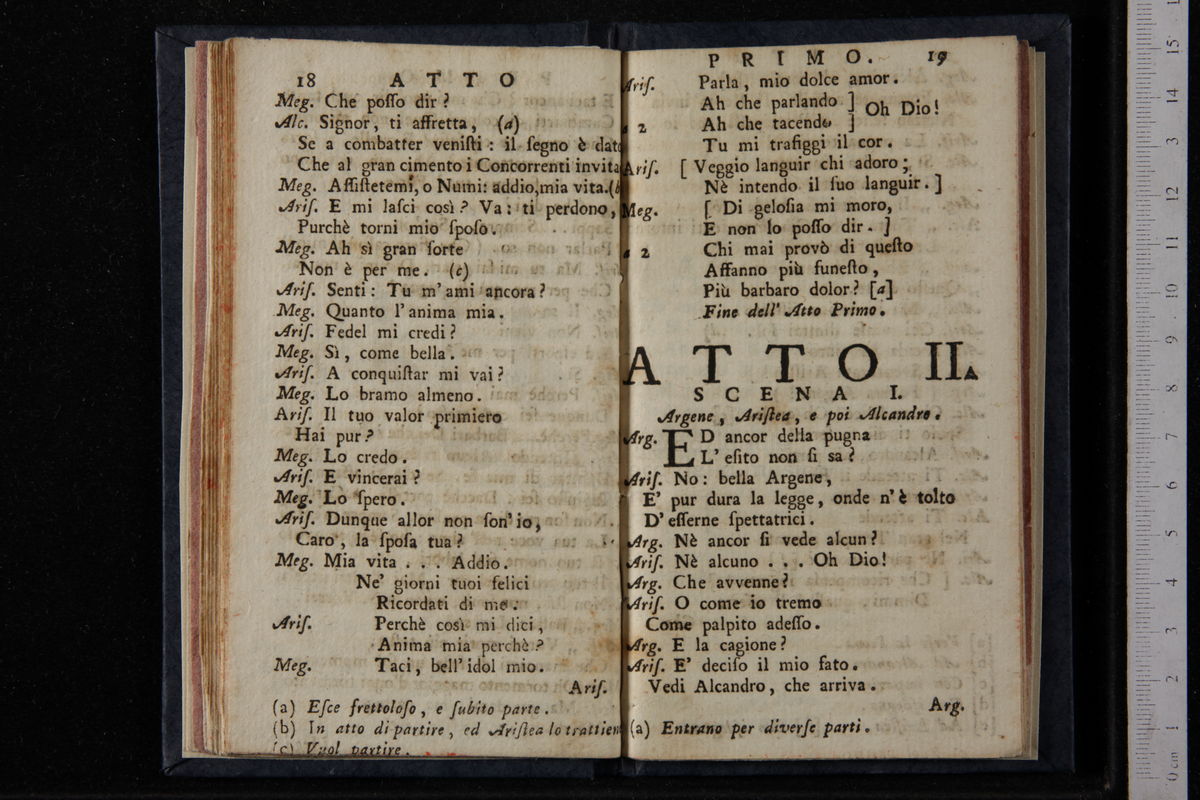 18 ATTO
Meg. Che poſſo dir?
Alc. Signor, ti affretta, (a)
Se a combatter veniſti: il ſegno è dato
Che al gran cimento i Concorrenti invita
Meg. Aſſiſtetemi, o Numi: addio, mia vita.(b
Ariſ. E mi laſci così? Va: ti perdono,
Purchè torni mio ſpoſo.
Meg. Ah sì gran ſorte
Non è per me. (c)
Ariſ. Senti: Tu m'ami ancora?
Meg. Quanto l'anima mia.
Ariſ. Fedel mi credi?
Meg. Sì, come bella.
Ariſ. A conquiſtar mi vai?
Meg. Lo bramo almeno.
Ariſ. Il tuo valor primiero
Hai pur?
Meg. Lo credo.
Ariſ. E vincerai?
Meg. Lo ſpero.
Ariſ. Dunque allor non ſon'io,
Caro, la ſpoſa tua?
Meg. Mia vita . . . Addio.
Ne' giorni tuoi felici
Ricordati di me.
Ariſ. Perchè così mi dici,
Anima mia perchè?
Meg. Taci, bell'idol mio.
Ariſ.
(a) Eſce frettoloſo, e ſubito parte.
(b) In atto di partire, ed Ariſtea lo trattien
(c) Vuol partire.
PRIMO. 19
Ariſ. Parla, mio dolce amor.
Ah che parlando ] Oh Dio!
a 2 Ah che tacendo ]
Tu mi trafiggi il cor.
Ariſ. [ Veggio languir chi adoro;
Nè intendo il ſuo languir. ]
Meg. [ Di geloſia mi moro,
E non lo poſſo dir. ]
a 2 Chi mai provò di queſto
Affanno più funeſto,
Più barbaro dolor? [a]
Fine dell' Atto Primo.
ATTO II.
SCENA I.
Argene, Ariſtea, e poi Alcandro.
Arg. ED ancor della pugna
L' eſito non ſi sa?
Ariſ. No: bella Argene,
E' pur dura la legge, onde n'è tolto
D'eſſerne ſpettatrici.
Arg. Nè ancor ſi vede alcun?
Ariſ. Nè alcuno . . . Oh Dio!
Arg. Che avvenne?
Ariſ. O come io tremo
Come palpito adeſſo.
Arg. E la cagione?
Ariſ. E' deciſo il mio fato.
Vedi Alcandro, che arriva.
Arg.
(a) Entrano per diverſe parti.
0 cm 1 2 3 4 5 6 7 8 9 10 11 12 13 14 15